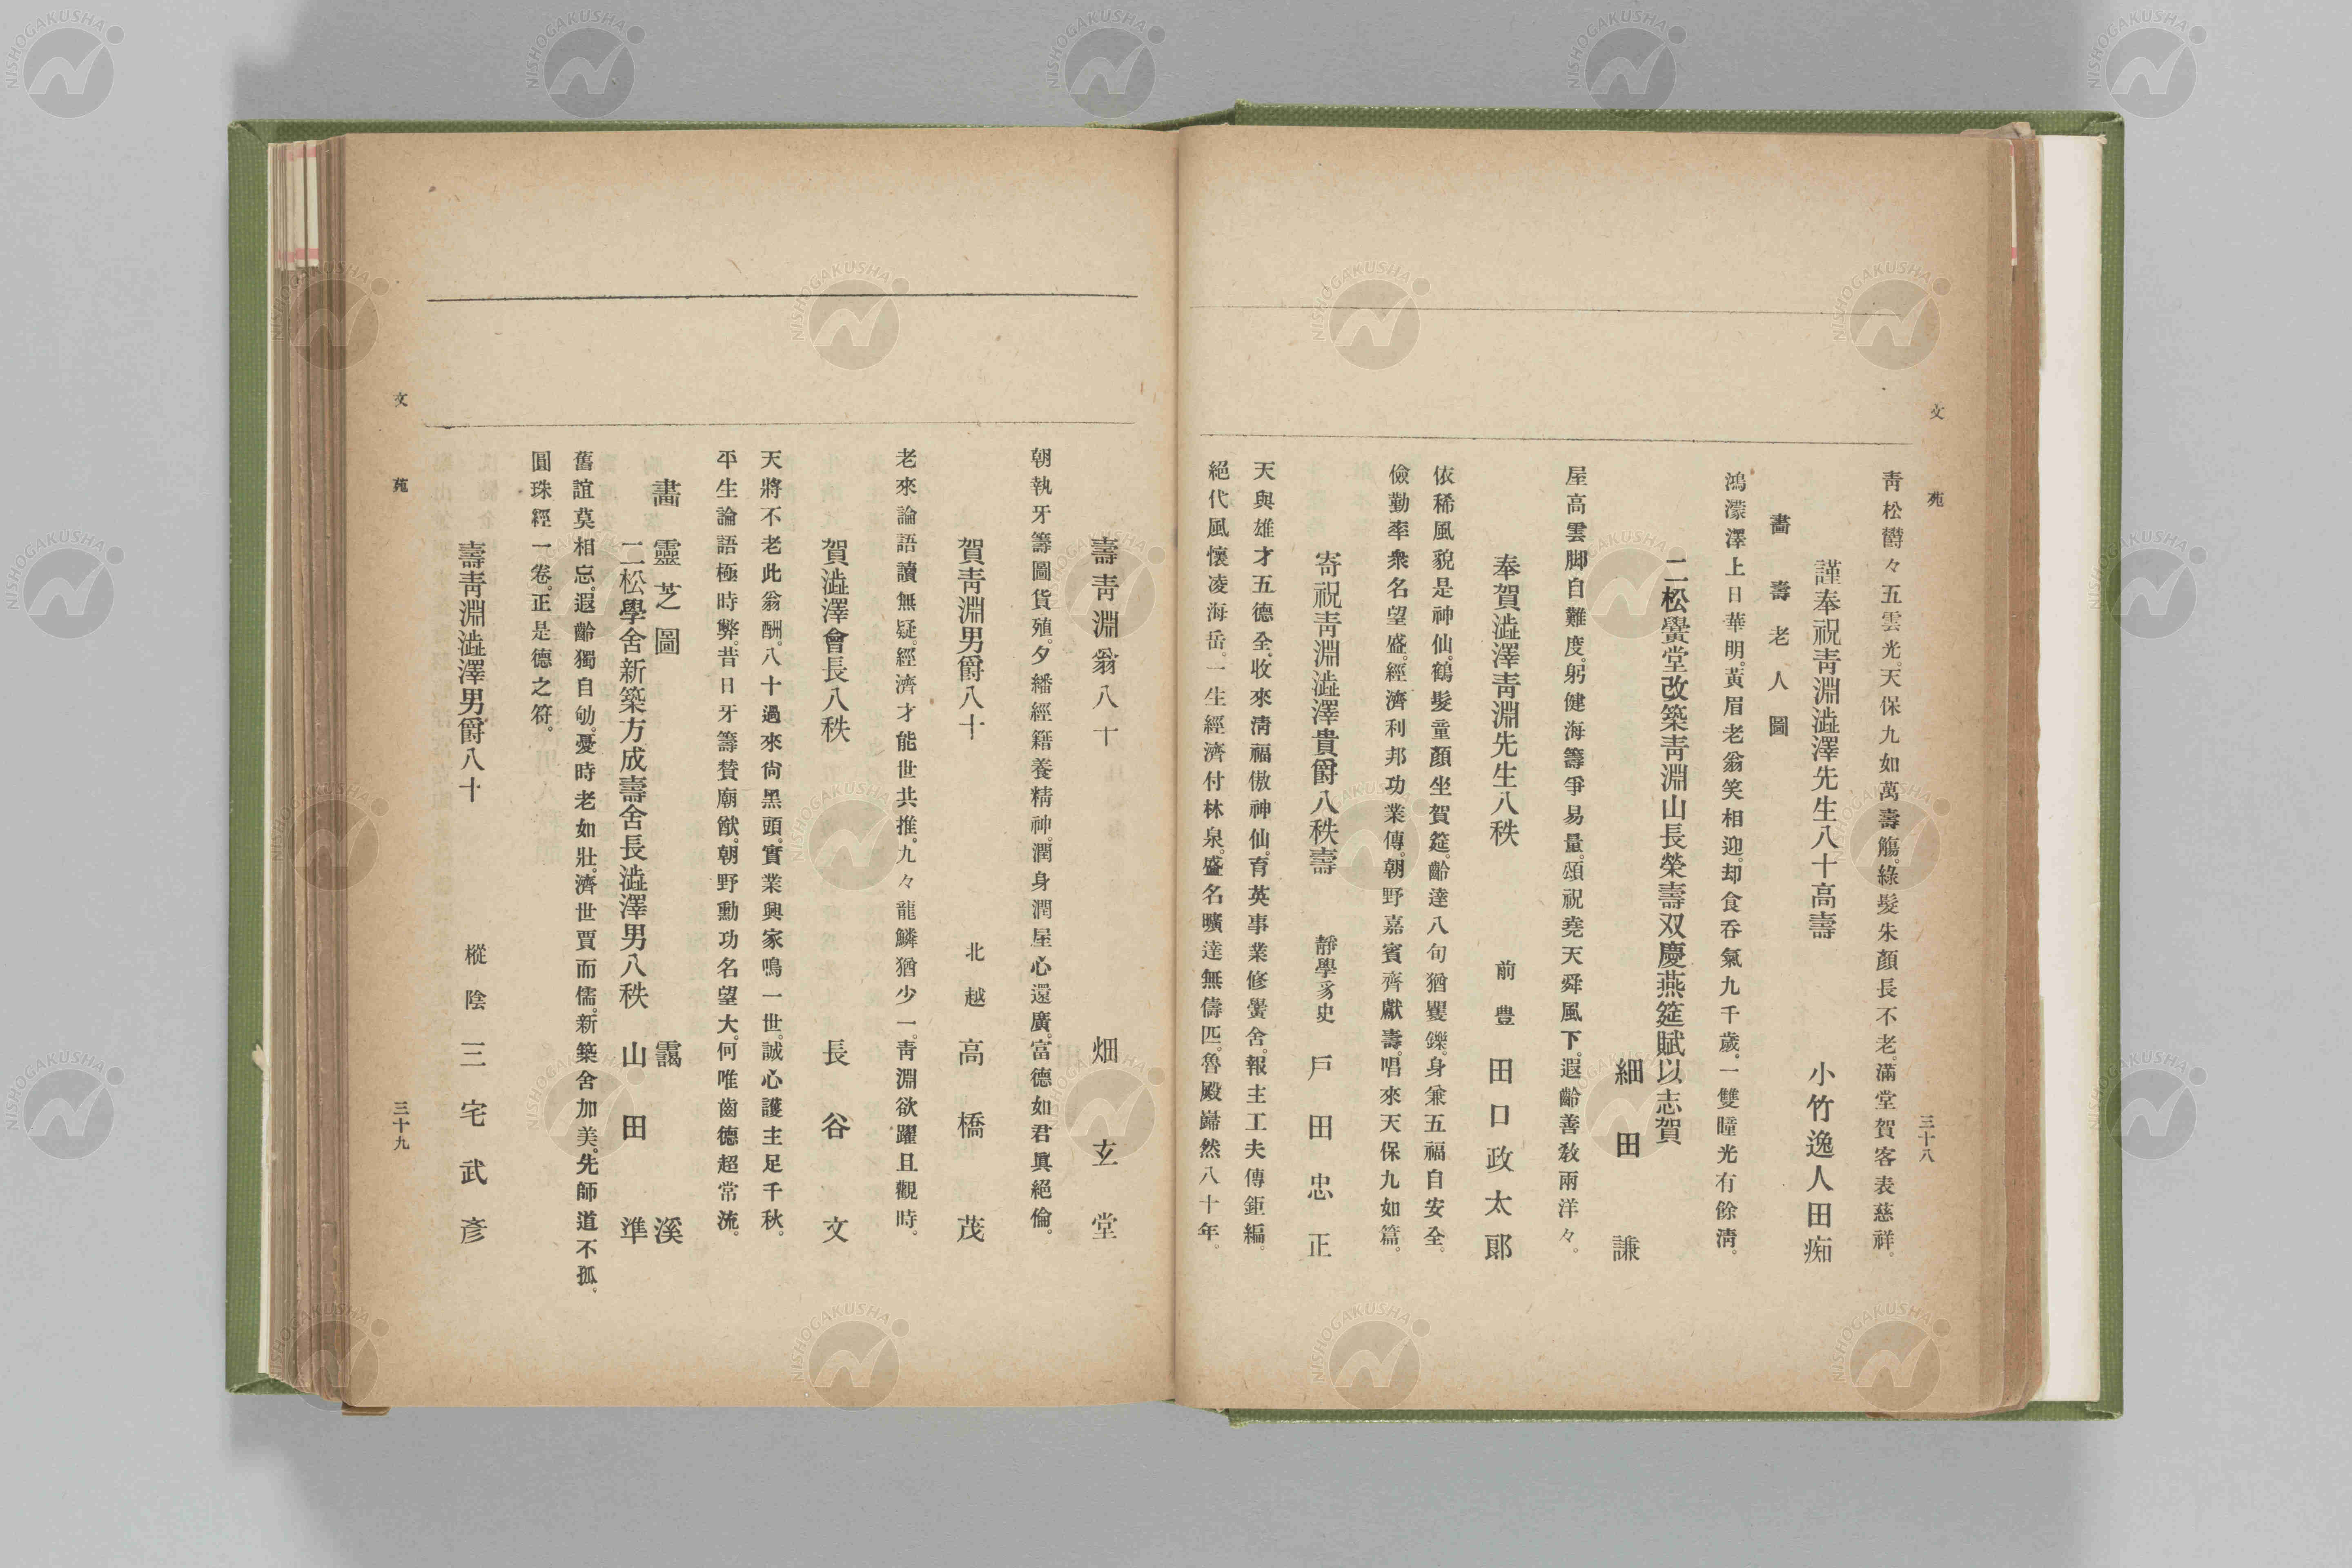 文苑
三十八
靑松欝々五雲光。天保九如萬壽觴。綠髮朱顏長不老。滿堂賀客表慈祥。
謹奉祝靑淵澁澤先生八十高壽
小竹逸人田痴
畵壽老人圖
鴻濛澤上日華明。黃眉老翁笑相迎。却食吞氣九千歲。一雙瞳光有餘淸。
二松黌堂改築靑淵山長榮壽双慶燕筵賦以志賀
細田謙
屋高雲脚自難度。躬健海籌爭易量。頌祝堯天舜風下。遐齡善敎兩洋々。
奉賀澁澤靑淵先生八秩
前豊 田口政太郞
依稀風貌是神仙。鶴髮童顏坐賀筵。齡達八旬猶矍鑠。身兼五福自安全。
儉勤率衆名望盛。經濟利邦功業傳。朝野嘉賓齊獻壽。唱來天保九如篇。
寄祝靑淵澁澤貴爵八秩壽
靜學豸史 戶田忠正
天與雄才五德全。收來淸福傲神仙。育英事業修黌舍。報主工夫傳鉅編。
絕代風懷凌海岳。一生經濟付林泉。盛名曠達無儔匹。魯殿巋然八十年。
壽靑淵翁八十
畑玄堂
朝執牙籌圖貨殖。夕繙經籍養精神。潤身潤屋心還廣。富德如君眞絕倫。
賀靑淵男爵八十
北越 高橋茂
老來論語讀無疑。經濟才能世共推。九々龍鱗猶少一。靑淵欲躍且觀時。
賀澁澤會長八秩
長谷文
天將不老此翁酬。八十過來尙黑頭。實業興家鳴一世。誠心護主足千秋。
平生論語極時弊。昔日牙籌賛廟猷。朝野勳功名望大。何唯齒德超常流。
畵靈芝圖
靄溪
二松學舍新築方成壽舍長澁澤男八秩
山田準
舊誼莫相忘。遐齡獨自劬。憂時老如壯。濟世賈而儒。新築舍加美。先師道不孤。
圓珠經一卷。正是德之符。
壽靑淵澁澤男爵八十
樅陰 三宅武彥
文苑
三十九
NISHOGAKUSHA